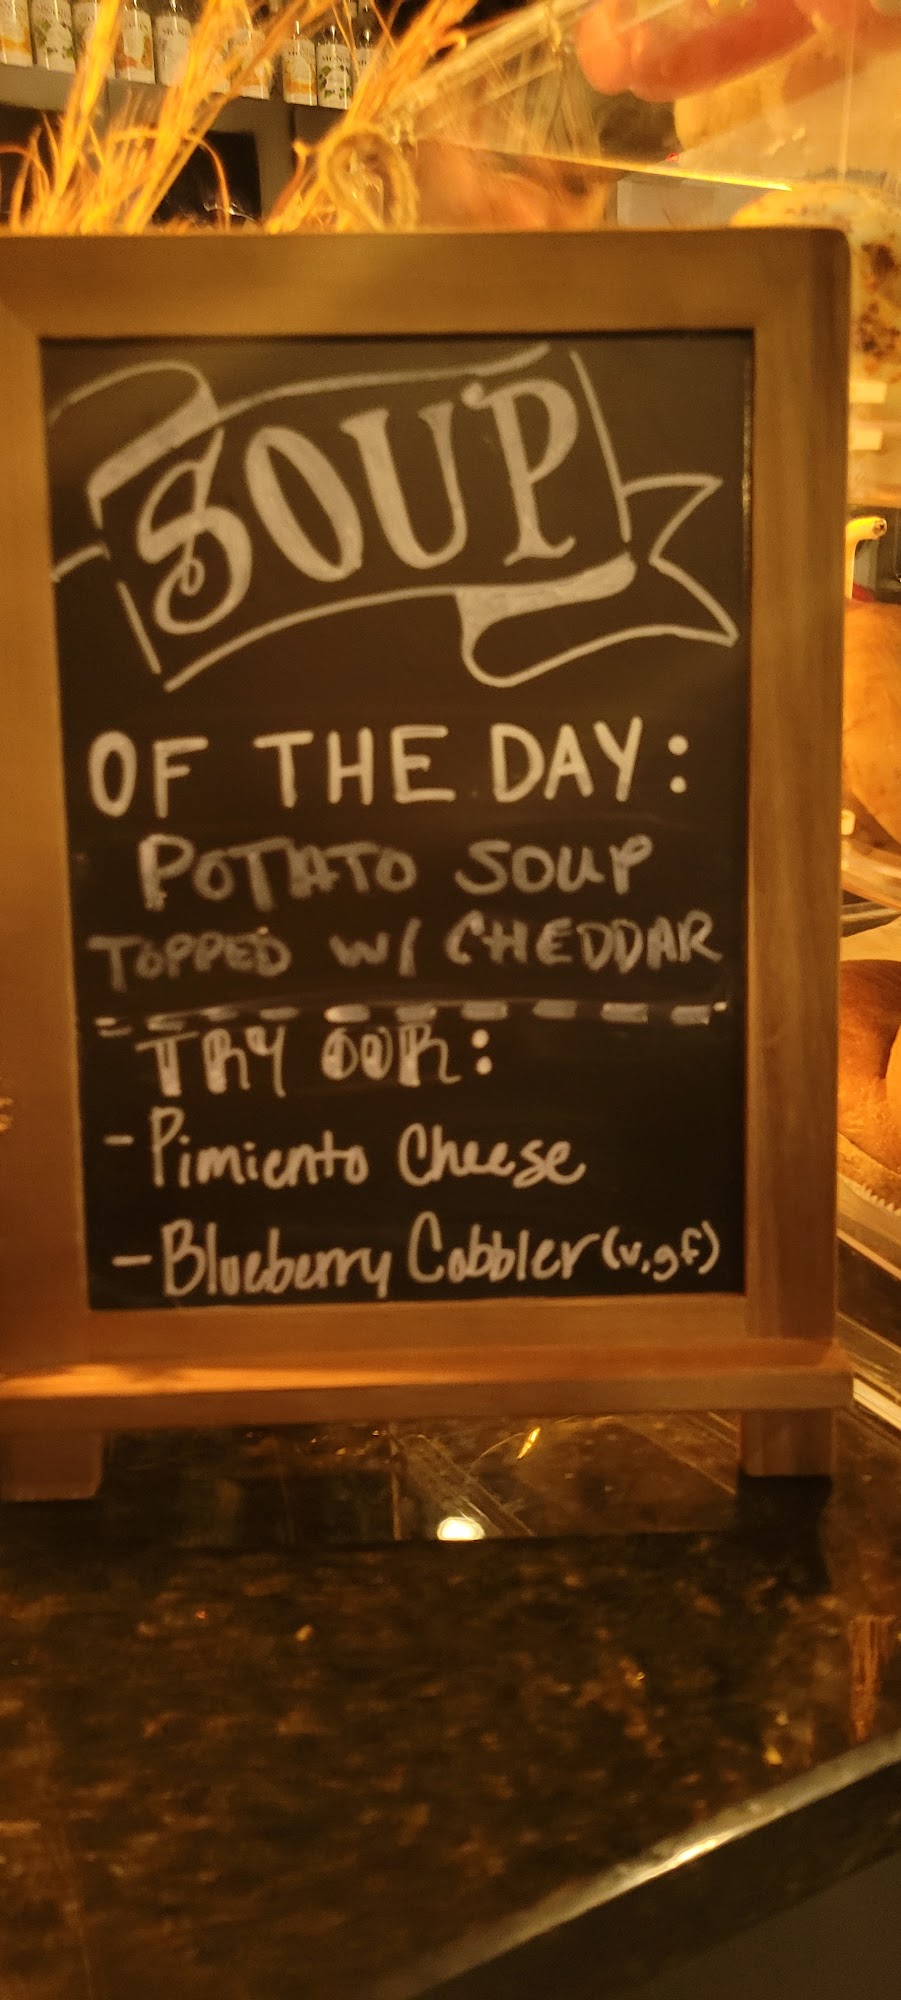 SOUP
OF THE DAY:
POTATO SOUP
TOPPED W/ CHEDDAR
TRY OUR:
- Pimiento Cheese
- Blueberry Cobbler (v, gf)